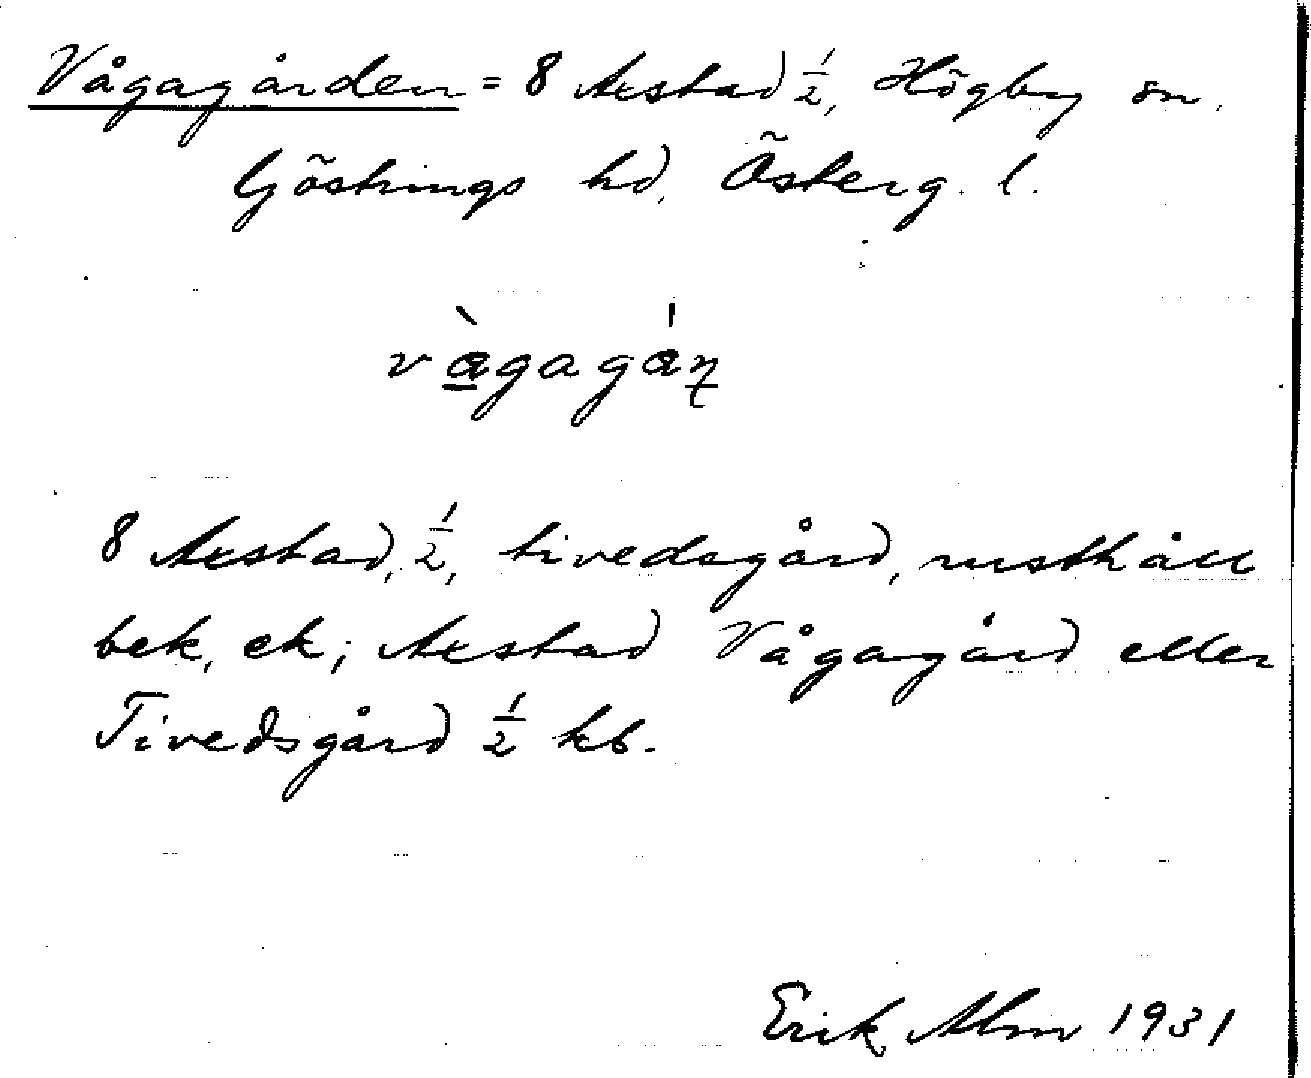 Vågagården = 8 Axstad ½, Högby sn.
Göstrings hd, Österg. l.
vàgagáɳ
8 Axstad, ½, tivedsgård, rusthåll
bek, ek; Axstad Vågagård eller
Tivedsgård ½ kb.
Erik Alm 1931